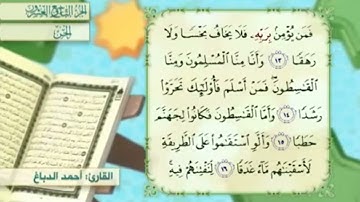 الجزء التاسع والعشرون
الجن
فَمَن يُؤْمِنۢ بِرَبِّهِۦ فَلَا يَخَافُ بَخْسًا وَلَا
رَهَقًا ١٣ وَأَنَّا مِنَّا ٱلْمُسْلِمُونَ وَمِنَّا
ٱلْقَٰسِطُونَ ۖ فَمَنْ أَسْلَمَ فَأُو۟لَٰٓئِكَ تَحَرَّوْا۟
رَشَدًا ١٤ وَأَمَّا ٱلْقَٰسِطُونَ فَكَانُوا۟ لِجَهَنَّمَ
حَطَبًا ١٥ وَأَلَّوِ ٱسْتَقَٰمُوا۟ عَلَى ٱلطَّرِيقَةِ
لَأَسْقَيْنَٰهُم مَّآءً غَدَقًا ١٦ لِّنَفْتِنَهُمْ فِيهِ ۚ
القارئ: أحمد الدباغ